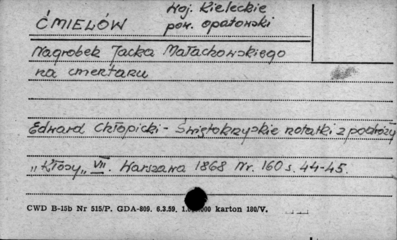 Woj. Kieleckie
ĆMIELÓW pow. opatowski
Nagrobek Jacka Małachowskiego
na cmentarzu
Edward Chłopicki - Świętokrzyskie notatki z podróży
"Kłosy" VII. Warszawa 1868 Nr. 160 s. 44-45.
CWD B-15b Nr 515/P. GDA-809. 6.3.59. karton 180/V.